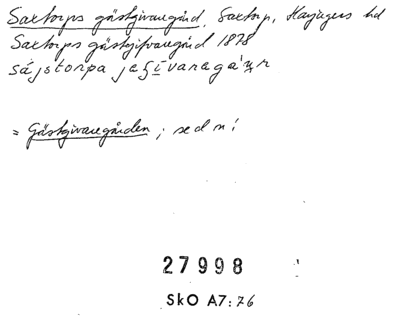 Saxtorps gästgivaregård, Saxtorp, Harjagers hd
Saxtorps gästgifvaregård 1878
sájstorpa jeʃivaregáʼɴr
= Gästgivaregården ; se d n !
27998
SkO A7:76